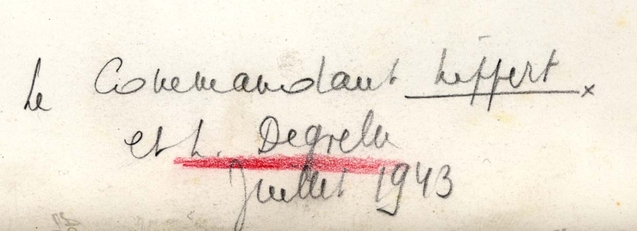 Le Commandant Lippert x
et L. Degrelle
Juillet 1943